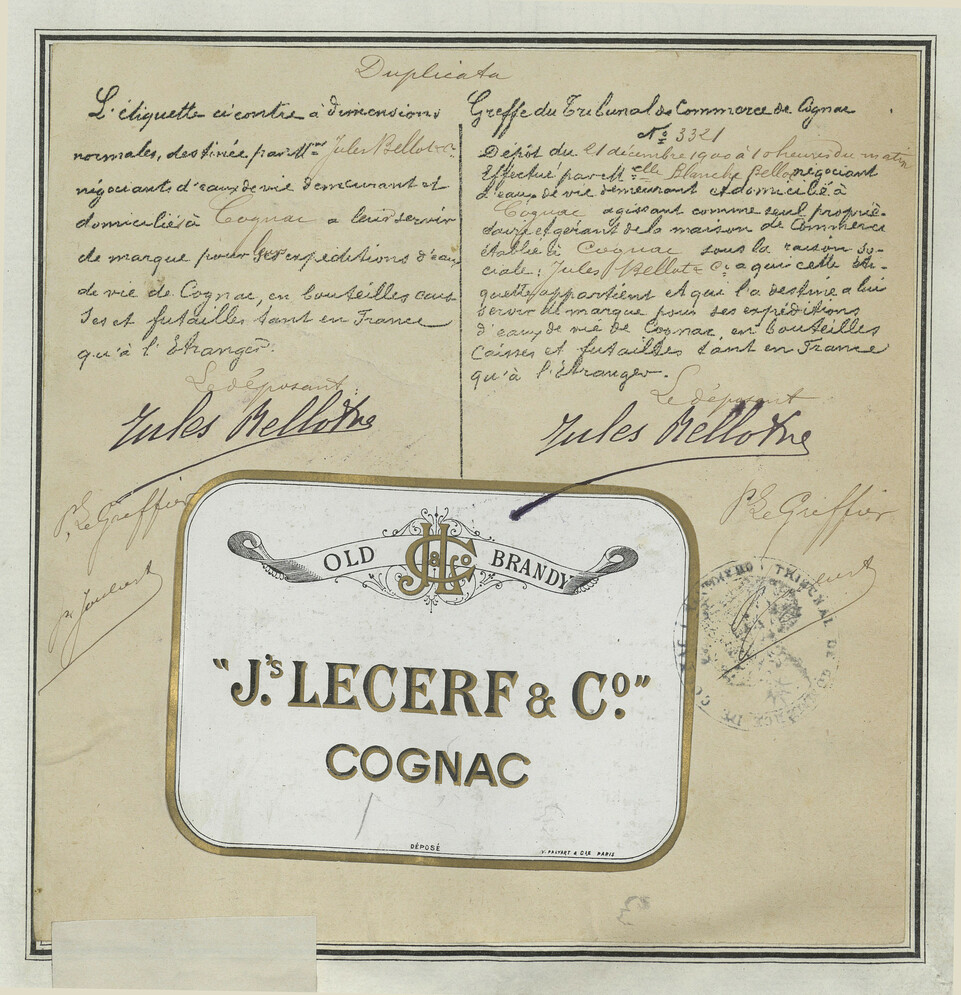 Duplicata
L'étiquette ci contre à dimensions
normales, destinée par Mm Jules Bellot & Cie
négociants d'eaux de vie demeurant et
domiciliés à Cognac a leur servir
de marque pour les expéditions d'eaux
de vie de Cognac, en bouteilles cais
ses et futailles tant en France
qu'à l'Etranger.
Le déposant
Jules Bellot & Cie
Pr Le Greffier
Greffe du Tribunal de Commerce de Cognac
No 3321
Dépôt du 21 décembre 1900 à 10 heures du matin
Effectué par Melle Blanche Bellot négociant
d'eaux de vie demeurant et domicilié à
Cognac agissant comme seul proprié-
taire et gérant de la maison de Commerce
établie à Cognac sous la raison so-
ciale: Jules Bellot & Cie a qui cette éti-
quette appartient et qui l'a destine a lui
servir de marque pour ses expéditions
d'eaux de vie de Cognac en bouteilles
Caisses et futailles tant en France
qu'à l'Etranger.
Le déposant
Jules Bellot & Cie
Pr Le Greffier
TRIBUNAL DE COMMERCE DE COGNAC
OLD JL & Co BRANDY
"J.s LECERF & Co."
COGNAC
DÉPOSÉ
PARIS